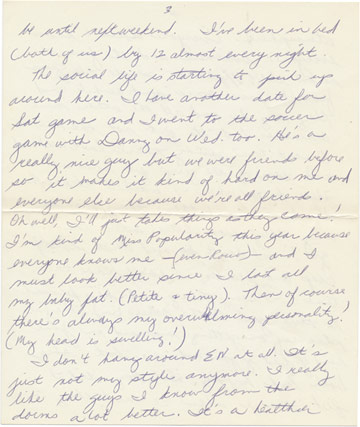 3
be until next weekend. I've been in bed
(both of us) by 12 almost every night.
The social life is starting to pick up
around here. I have another date for
Sat game and I went to the soccer
game with Danny on Wed. too. He's a
really nice guy but we were friends before
so it makes it kind of hard on me and
everyone else because we're all friends.
Oh well, I'll just take things as they come!
I'm kind of Miss Popularity this year because
everyone knows me - - and I
must look better since I lost all
my baby fat. (Petite & tiny). Then of course
there's always my overwhelming personality!
(My head is swelling!)
I don't hang around EN at all. It's
just not my style anymore. I really
like the guys I know from the
dorms a lot better. It's a healthier